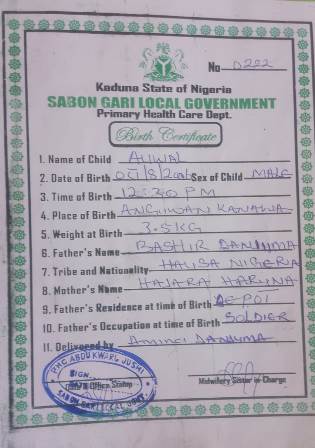 No 0222
Kaduna State of Nigeria
SABON GARI LOCAL GOVERNMENT
Primary Health Care Dept.
Birth Certificate
1. Name of Child AUWAL
2. Date of Birth Sex of Child MALE
3. Time of Birth 12:30 PM
4. Place of Birth ANGUWAN KANAWA
5. Weight at Birth 3.5KG
6. Father's Name BASHIR DANJUMA
7. Tribe and Nationality HAUSA NIGERIA
8. Mother's Name HAJARA HARUNA
9. Father's Residence at time of Birth DEPOT
10. Father's Occupation at time of Birth SOLDIER
11. Delivered by Aminci DANJUMA
PHC ABDU KWARI JUSHI
SIGN
DATE
Date & Office Stamp
SABON GARI LOCAL GOVT.
Midwifery Sister in-Charge